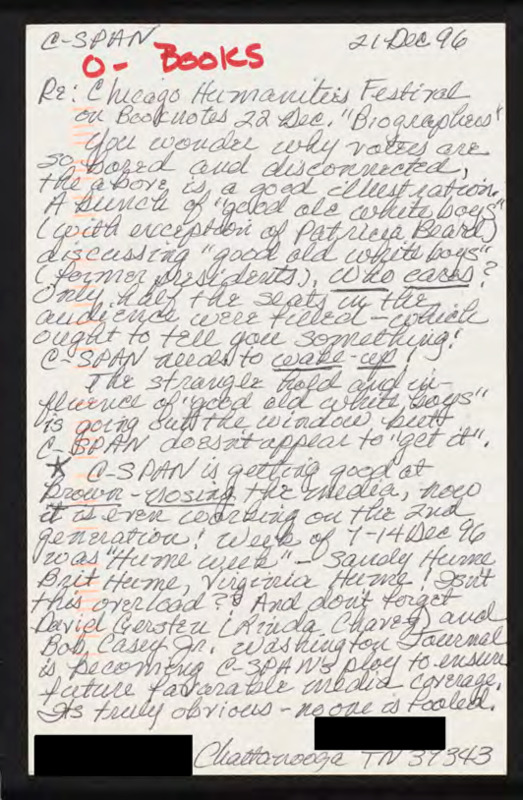 C-SPAN 21 Dec 96
O- BOOKS
Re: Chicago Humanities Festival
on Booknotes 22 Dec. "Biographers"
You wonder why voters are
so bored and disconnected,
the above is a good illustration.
A bunch of "good old white boys"
(with exception of Patricia Beard)
discussing "good old white boys"
(former presidents), who cares?
Only half the seats in the
audience were filled - which
ought to tell you something!
C-SPAN needs to wake-up!
The strangle hold and in-
fluence of "good old white boys"
is going out the window but
C-SPAN doesn't appear to "get it".
★ C-SPAN is getting good at
brown-nosing the media, now
it is even working on the 2nd
generation! Week of 7-14 Dec 96
was "Hume week" - Sandy Hume
Brit Hume, Virginia Hume! Isn't
this overload?? And don't forget
David Gersten (Linda Chavez) and
Bob Casey Jr. Washington Journal
is becoming C-SPAN's ploy to ensure
future favorable media coverage.
Its truly obvious - no one is fooled.
Chattanooga TN 37343